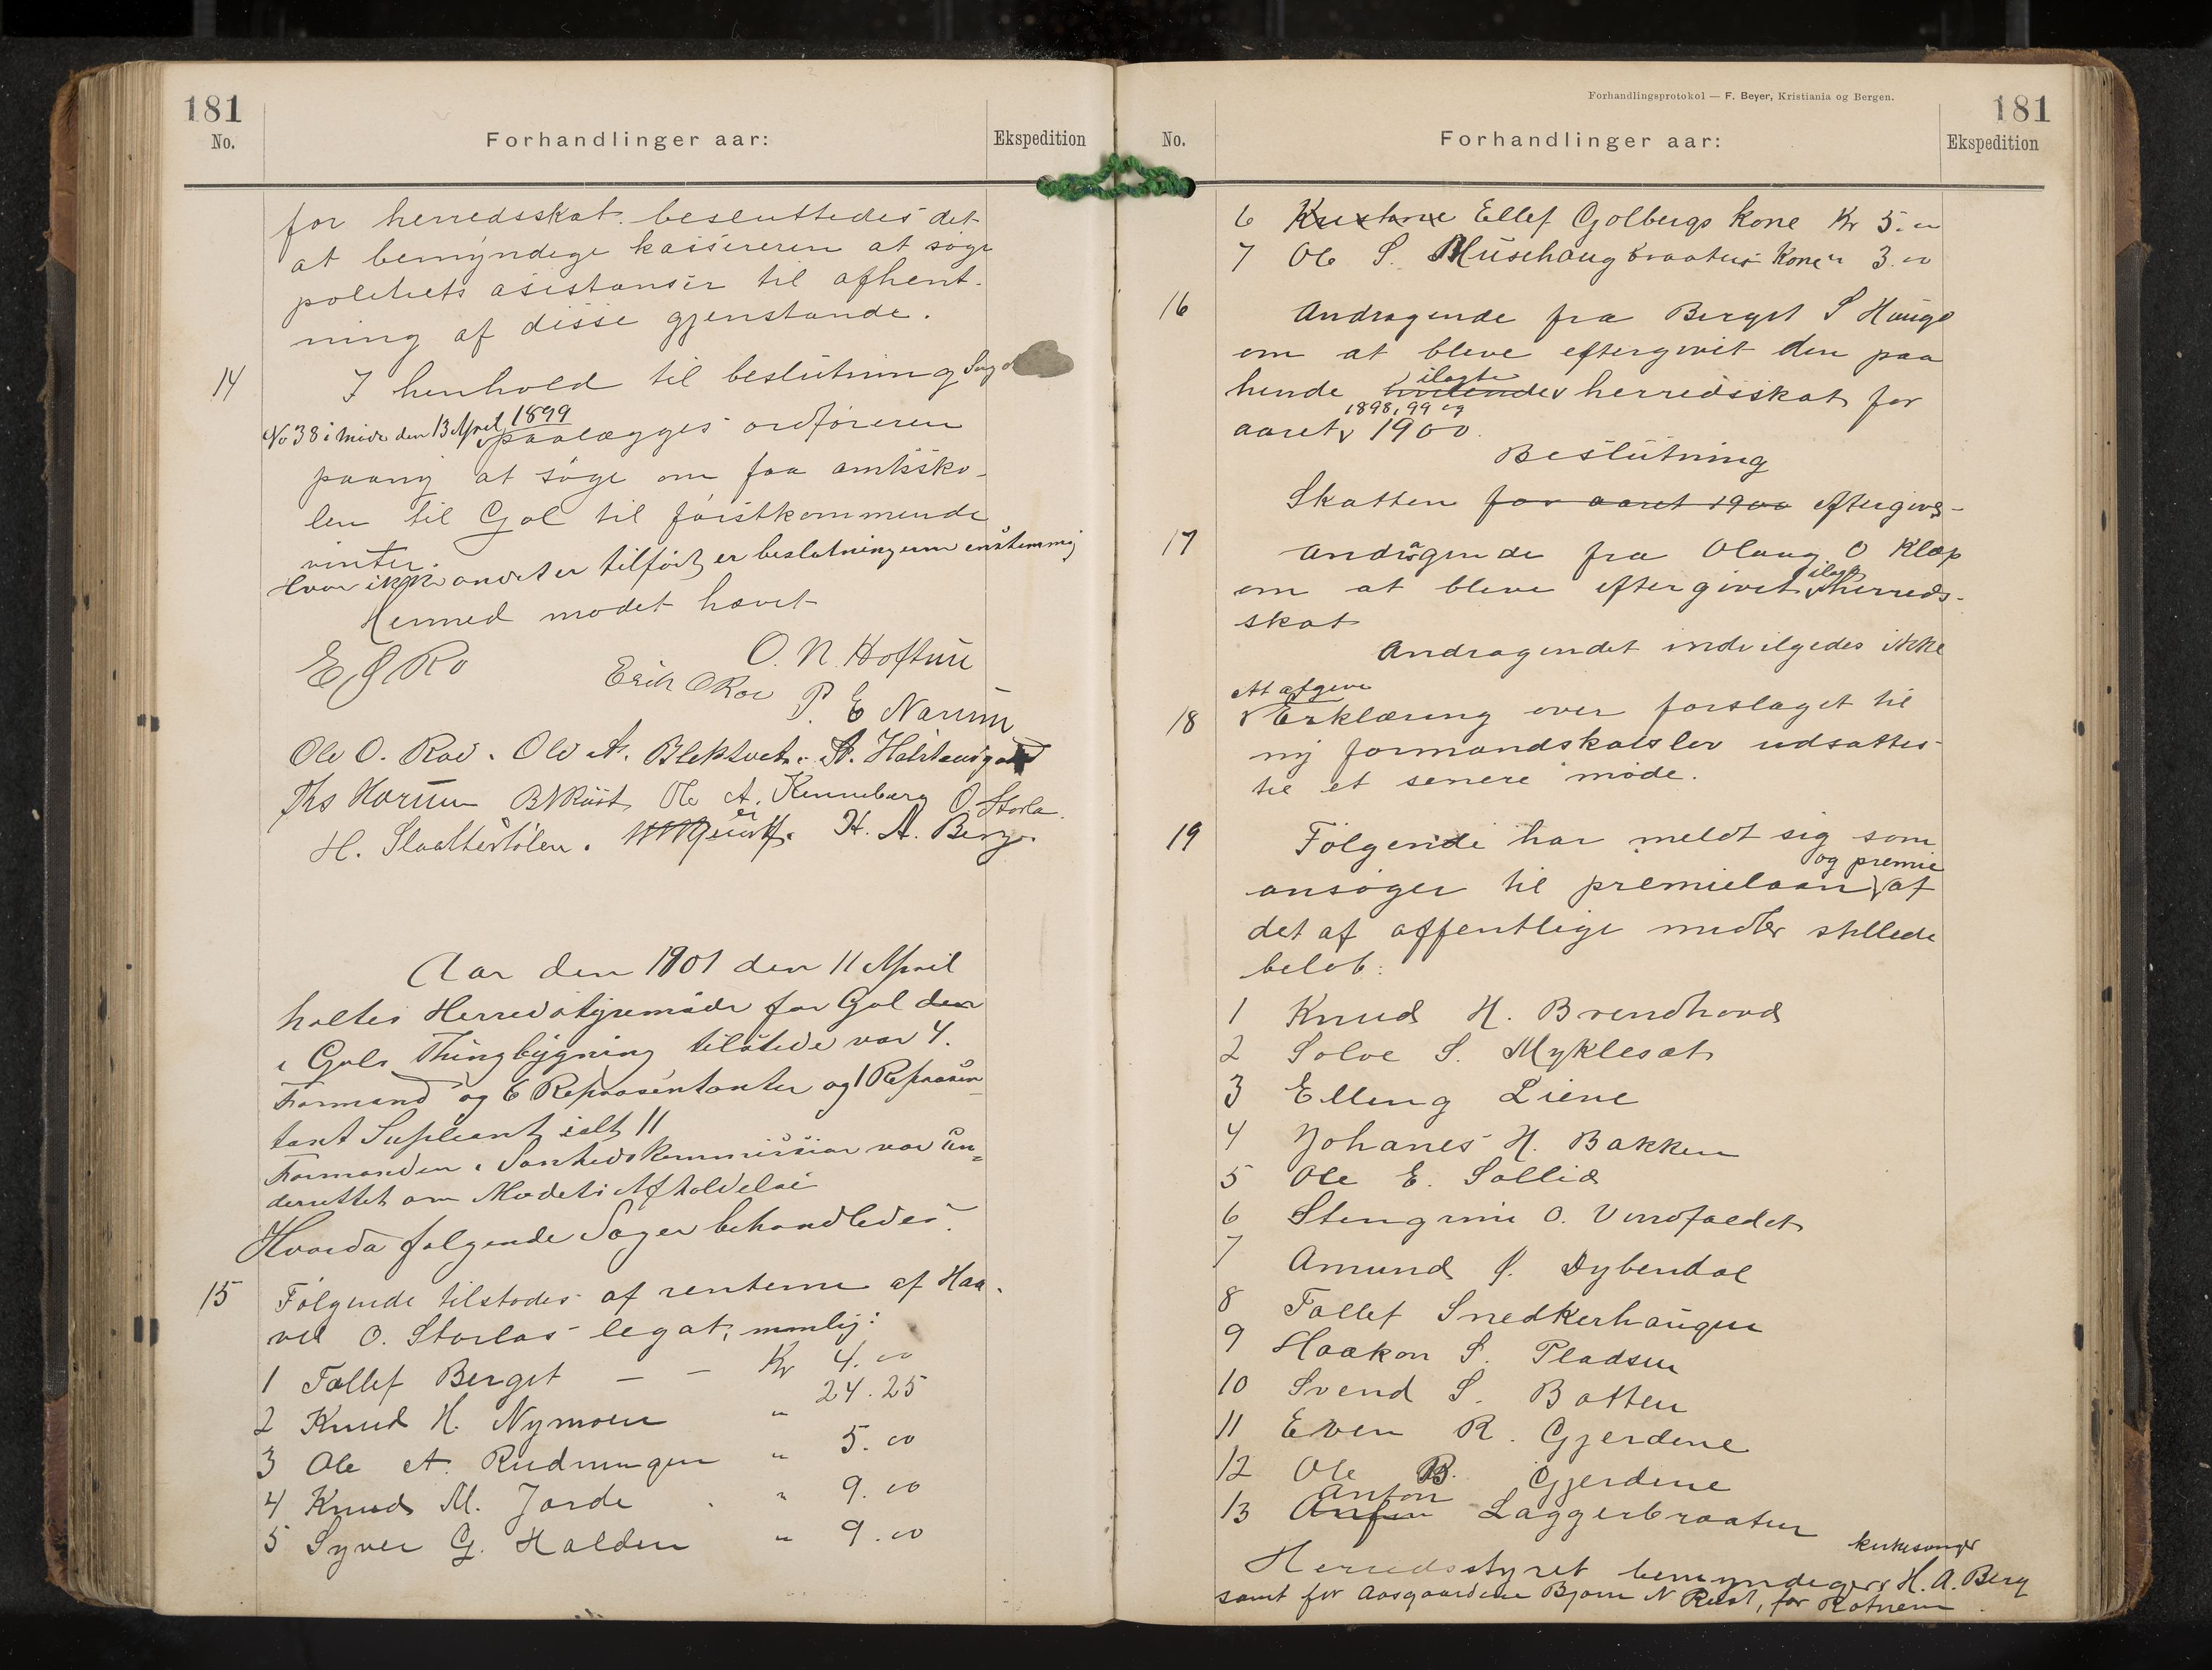 181
No.
Forhandlinger aar:
Ekspedition
for herredsskat besluttedes det
at bemyndige kassereren at søge
politiets asistanser til afhent-
ning af disse gjenstande.
14 I henhold til beslutning Sag
No 38 i møde den 13 April 1899
paalægges ordføreren
paany at søge om faa amtssko-
len til Gol til førstkommende
vinter.
Hvor ikke andet er tilført er beslutningerne enstemmig
Hermed mødet hævet
O. N. Hoftun
Erik O Roe P. E Narum
Ole O. Roe. Ole A. Bleksvet.
Ths Narum B N Rust Ole A. Kenneberg O. Storla.
H. Slaattestølen. H. A. Berg.
Aar den 1901 den 11 April
holtes Herredstyremøde for Gol den
i Gols Thingbygning tilstede var 4.
Formænd og 6 Repræsentanter og 1 Repræsen
tant Supleant ialt 11
Formanden i Sunhedskommissior var un=
derrettet om Modets Afholdelse
Hvorda følgende Sager behandledes.
15 Følgende tilstodes af renterne af Haa-
vel O. Storlas legat, nemlig:
1 Tollef Berget — — Kr 4.00
2 Knud H. Nymoen " 24.25
3 Ole A. Rudningen " 5.00
4 Knud M. Jorde . " 9.00
5 Syver G. Halden " 9.00
Forhandlingsprotokol — F. Beyer, Kristiania og Bergen.
181
No.
Forhandlinger aar:
Ekspedition
6 Ellef Golbergs kone Kr 5.00
7 Ole S. braatens kone " 3.00
16 Andragende fra Berget S Hauge
om at bleve eftergivet den paa
ilagte
hende herredsskat for
1898, 99 og
aaret 1900.
Beslutning
Skatten for aaret 1900 eftergives-
17 Andragende fra Olaug O Klep
ilagt
om at bleve eftergivet herreds-
skat
Andragendet indvilgedes ikke
At afgive
18 Erklæring over forslaget til
ny formandskabslov udsattes
til et senere møde.
19 Følgende har meldt sig som
og premie
ansøger til premielaan af
det af offentlige midler stillede
beløb:
1 Knud H. Brendhovd
2 Solve S. Myklesæt
3 Elling Liene
4 Johanes H. Bakken
5 Ole E. Sollid
6 Stengrim O.
7 Amund O. Dybendal
8 Tollef Snedkerhaugen
9 Haakon S. Pladsen
10 Svend S. Botten
11 Even R. Gjerdene
12 Ole B. Gjerdene
Anton
13 Laggerbraaten
kirkesanger
Herredsstyret bemyndiger H. A. Berg
samt for Aasgaardene Bjørn N Rust, for Rotneim